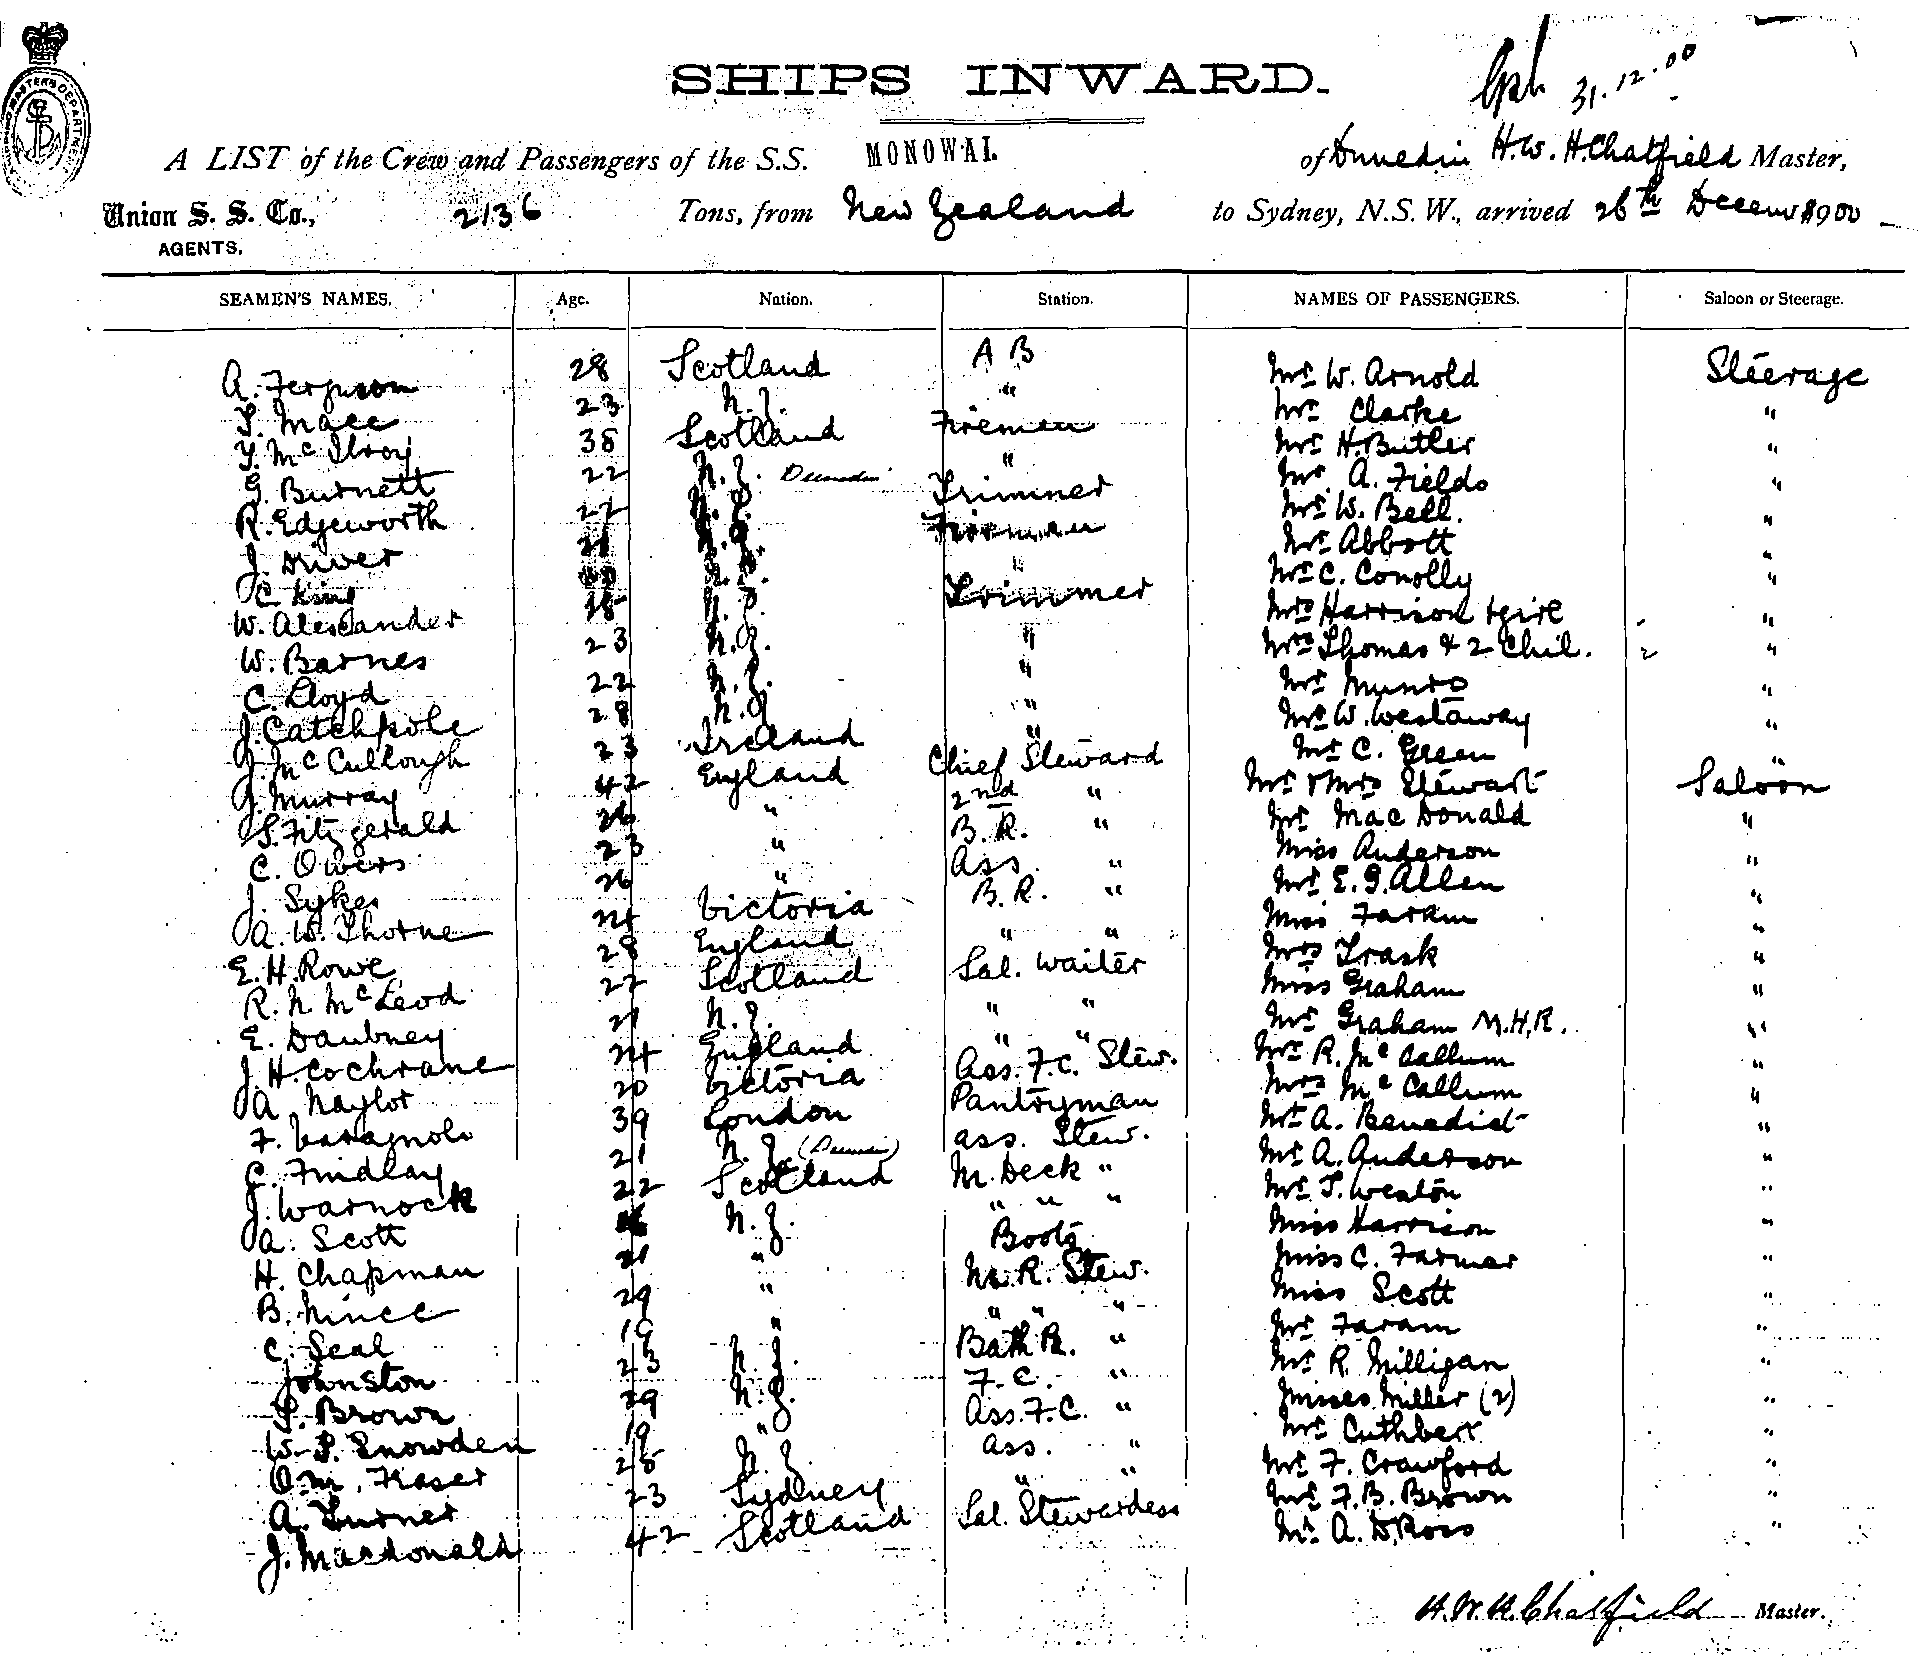 SHIPS INWARD.
31.12.00
A LIST of the Crew and Passengers of the S.S. MONOWAI. of Dunedin H.W.H. Chatfield Master,
Union S. S. Co., 2136 Tons, from New Zealand to Sydney, N.S.W., arrived 26th 1900
AGENTS.
SEAMEN'S NAMES. Age. Nation. Station. NAMES OF PASSENGERS. Saloon or Steerage.
A. Ferguson 28 Scotland A B Mr W. Arnold Steerage
T. Mace 23 N.Z. " Mr Clarke "
McIlroy 38 Scotland Firemen Mr H. Butler "
G. Burnett 22 N.Z. Dunedin " Mr A. Fields "
R. Edgeworth 22 N.Z. Trimmer Mr W. Bell. "
J. Driver N.Z. Fireman Mr Abbott "
C. King N.Z. " Mr C. Conolly "
W. Alexander N.Z. Trimmer Mrs Harrison & girl "
W. Barnes 23 N.Z. " Mrs Thomas & 2 Chil. "
C. Lloyd 22 N.Z. " Mr Munro "
J. Catchpole 28 N.Z. " Mr W. Westaway "
J. McCullough 23 Ireland " Mr C. Green "
J. Murray 42 England Chief Steward Mr & Mrs Stewart Saloon
S. Fitzgerald 26 " 2nd " Mr MacDonald "
C. Owers 23 " B.R. " Miss Anderson "
J. Sykes 26 " Ass. " Mr E.G. Allen "
A. W. Thorne 24 Victoria B.R. " Miss Faram "
E. H. Rowe 28 England " " Mrs Trask "
R. N McLeod 22 Scotland Sal. Waiter Miss Graham "
E. Daubney 21 N.Z. " " Mr Graham M.H.R. "
J. H. Cochrane 24 England " " Mr R. McCallum "
A Naylor 20 Victoria Ass. F.C. Stew. Mrs McCallum "
F. 39 London Pantryman Mr A. Benedict "
C. Findlay 21 N.Z. (Dunedin) Ass. Stew. Mr A. Anderson "
J. Warnock 22 Scotland M. Deck " Mr T. Weston "
A. Scott N.Z. " " " Miss Harrison "
H. Chapman 21 " Boots Miss C. Farmer "
B. Mince 29 " M.R. Stew. Miss Scott "
C. Seal 19 " " " " Mr Faram "
Johnston 23 N.Z. Bath R. " Mr R. Milligan "
Brown 29 N.Z. F.C. " Misses Miller (2) "
W. Snowden 19 " Ass. F.C. " Mr Cuthbert "
O. M. Fraser 25 N.Z. Ass. " Mr F. Crawford "
A. Turner 23 Sydney " " Mr F.B. Brown "
J. Macdonald 42 Scotland Sal. Stewardess Mr A. D. Ross "
H.W.H. Chatfield Master.